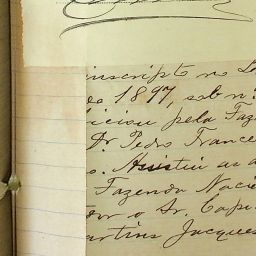 inscripto no L
de 1897, sob n
liciou pela Faz
Dr. Pedro France
o. Assistiu ao a
Fazenda Naci
tor o Sr. Capi
artins Jacques